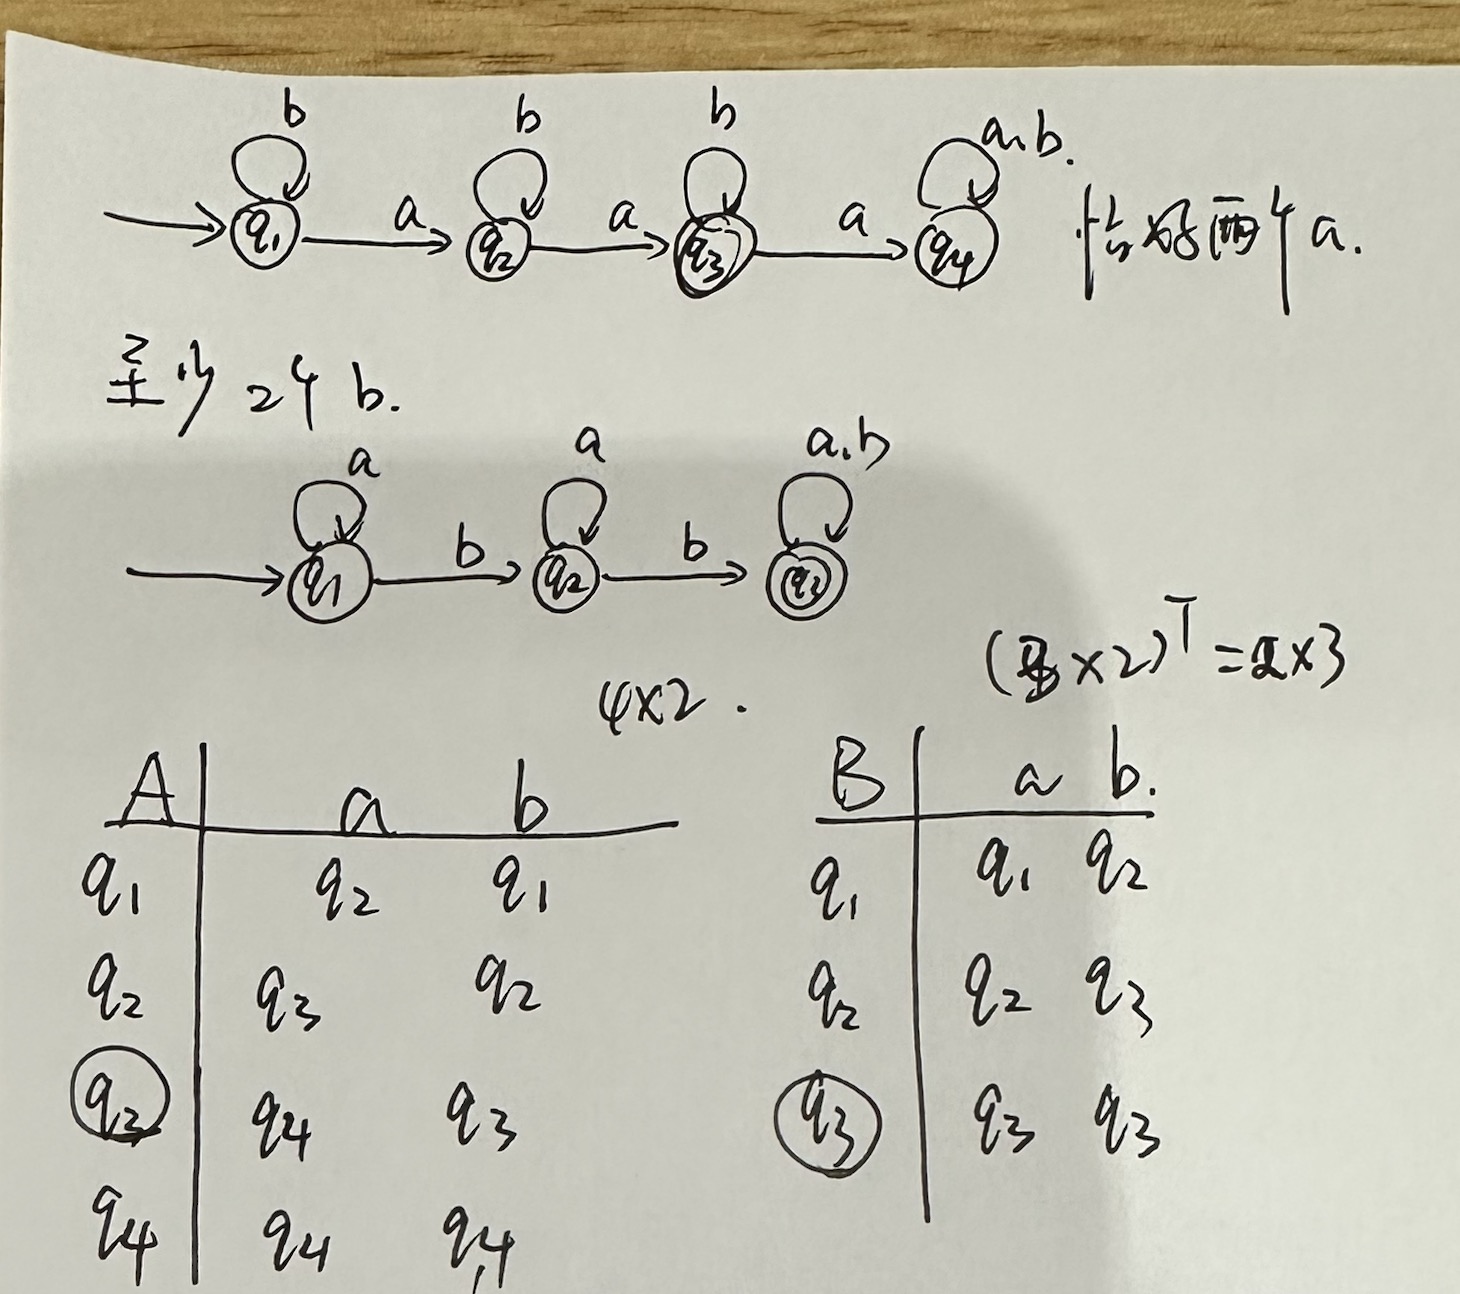 b b b a,b.
q1 a q2 a q3 a q4 恰好两个a.
至少2个 b.
a a a,b
q1 b q2 b q3
(3×2)ᵀ=2×3
4×2.
A a b
q1 q2 q1
q2 q3 q2
q3 q4 q3
q4 q4 q4
B a b.
q1 q1 q2
q2 q2 q3
q3 q3 q3